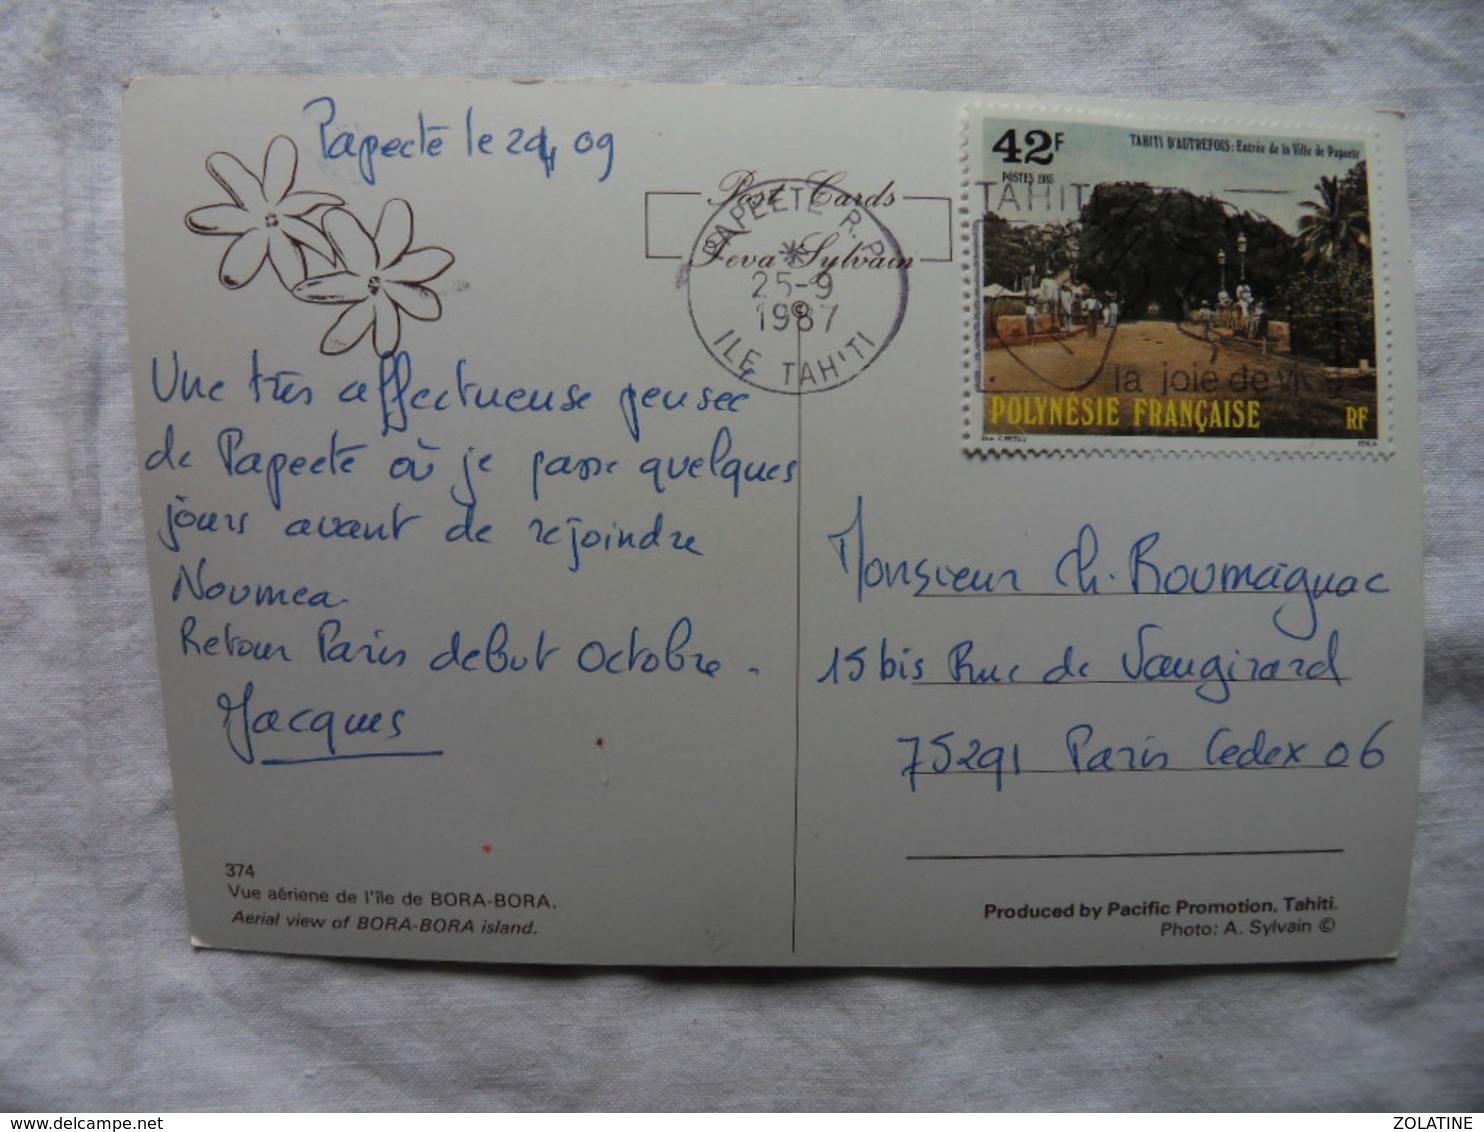 Papeete le 24 09
Post Cards
Teva Sylvain
©
PAPEETE R.P.
25-9
1987
ILE TAHITI
42F
POSTES 1985
TAHITI D'AUTREFOIS: Entrée de la Ville de Papeete
TAHITI
la joie de vivre
POLYNÉSIE FRANÇAISE
RF
Une très affectueuse pensee
de Papeete où je passe quelques
jours avant de rejoindre
Noumea.
Retour Paris debut Octobre.
Jacques
Monsieur Ch. Roumagnac
15 bis Rue de Vaugirard
75291 Paris Cedex 06
374
Vue aériene de l'île de BORA-BORA.
Aerial view of BORA-BORA island.
Produced by Pacific Promotion, Tahiti.
Photo: A. Sylvain ©
delcampe.net
ZOLATINE